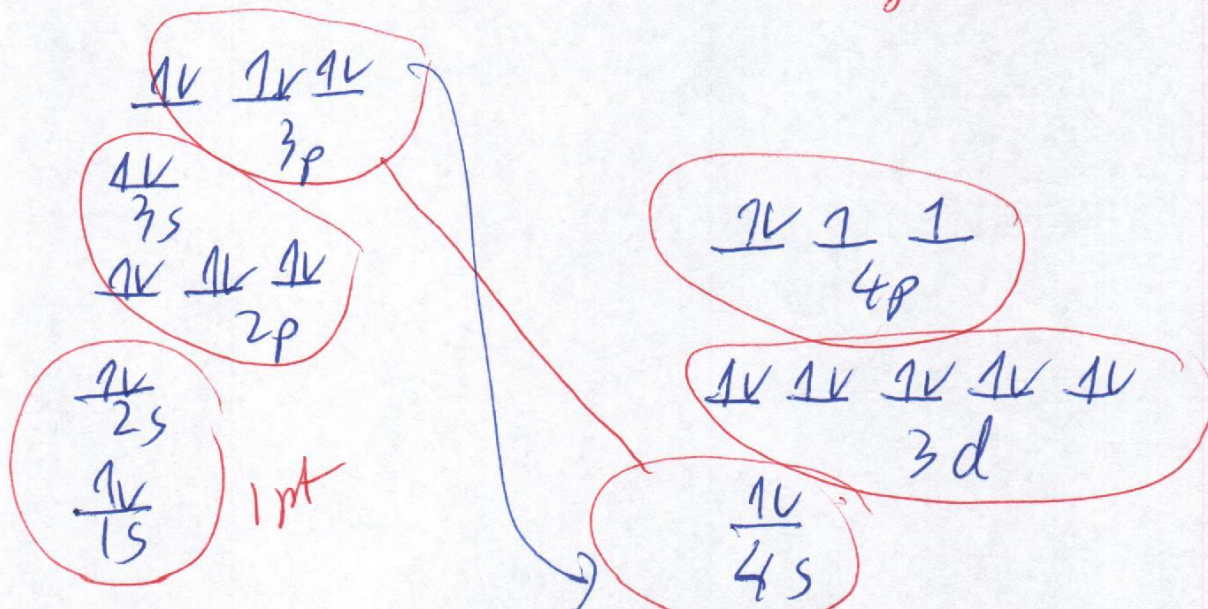 1v 1v 1v
3p
1v
3s
1v 1v 1v
2p
1v
2s
1v
1s
1 pt
1v 1 1
4p
1v 1v 1v 1v 1v
3d
1v
4s